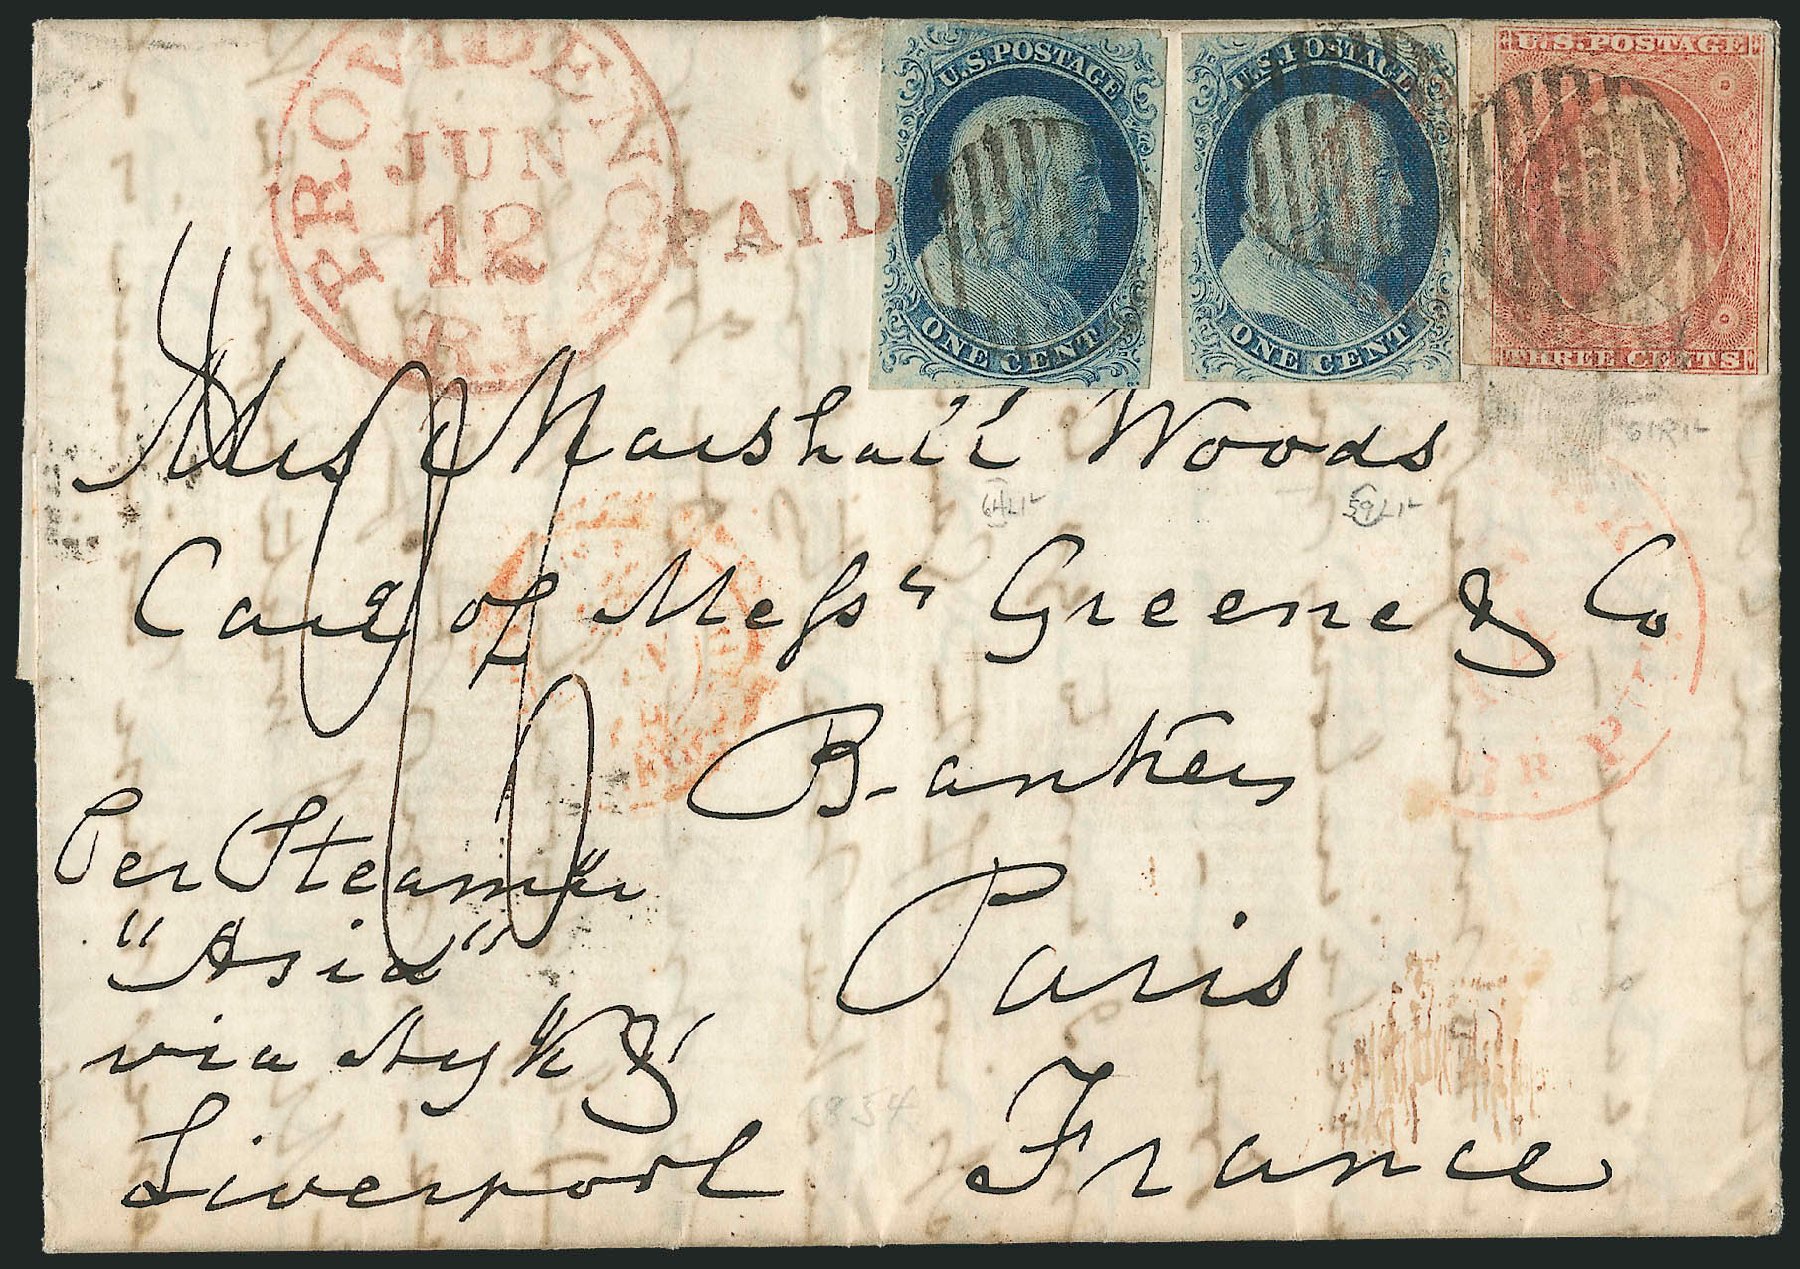 PROVIDENCE
JUN
12
R.I.
PAID
U.S. POSTAGE
ONE CENT
U.S. POSTAGE
ONE CENT
U.S. POSTAGE
THREE CENTS
Mrs Marshall Woods
61R1L
59L1L
Care of Messrs Greene & Co
Bankers
Paris
France
Per Steamer
"Asia"
via N York &
Liverpool
1854
BR. P